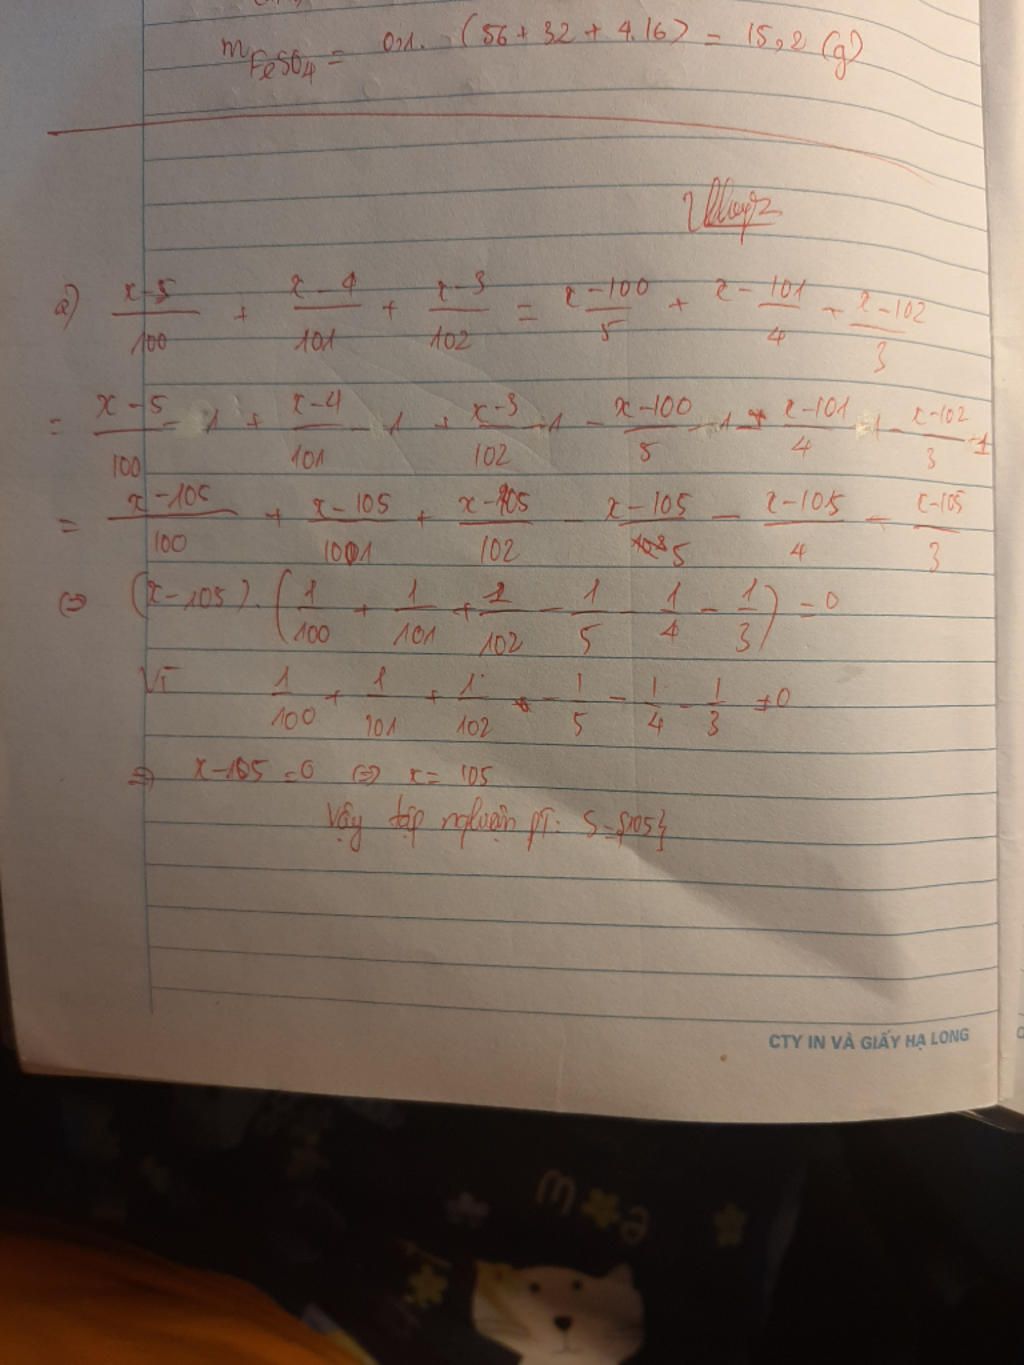 m FeSO4 = 0,1. (56 + 32 + 4.16) = 15,2 (g)
a) x-5/100 + x-4/101 + x-3/102 = x-100/5 + x-101/4 + x-102/3
= x-5/100 - 1 + x-4/101 - 1 + x-3/102 - 1 - x-100/5 - 1 - x-101/4 - 1 - x-102/3 - 1
= x-105/100 + x-105/1001 + x-105/102 - x-105/5 - x-105/4 - x-105/3
⇔ (x-105). (1/100 + 1/101 + 1/102 - 1/5 - 1/4 - 1/3) = 0
Vì 1/100 + 1/101 + 1/102 - 1/5 - 1/4 - 1/3 ≠ 0
⇒ x-105 = 0 ⇔ x = 105
Vậy tập nghiệm pT: S = {105}
CTY IN VÀ GIẤY HẠ LONG